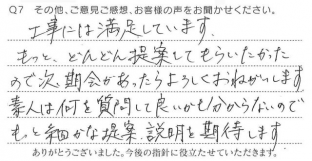 Q7 その他、ご意見ご感想、お客様の声をお聞かせください。
工事には満足しています。
もっと、どんどん提案してもらいたかった
ので次、期会があったらよろしくおねがいします
素人は何を質問して良いかもわからないので
もっと細かな提案、説明を期待します
ありがとうございました。今後の指針に役立たせていただきます。